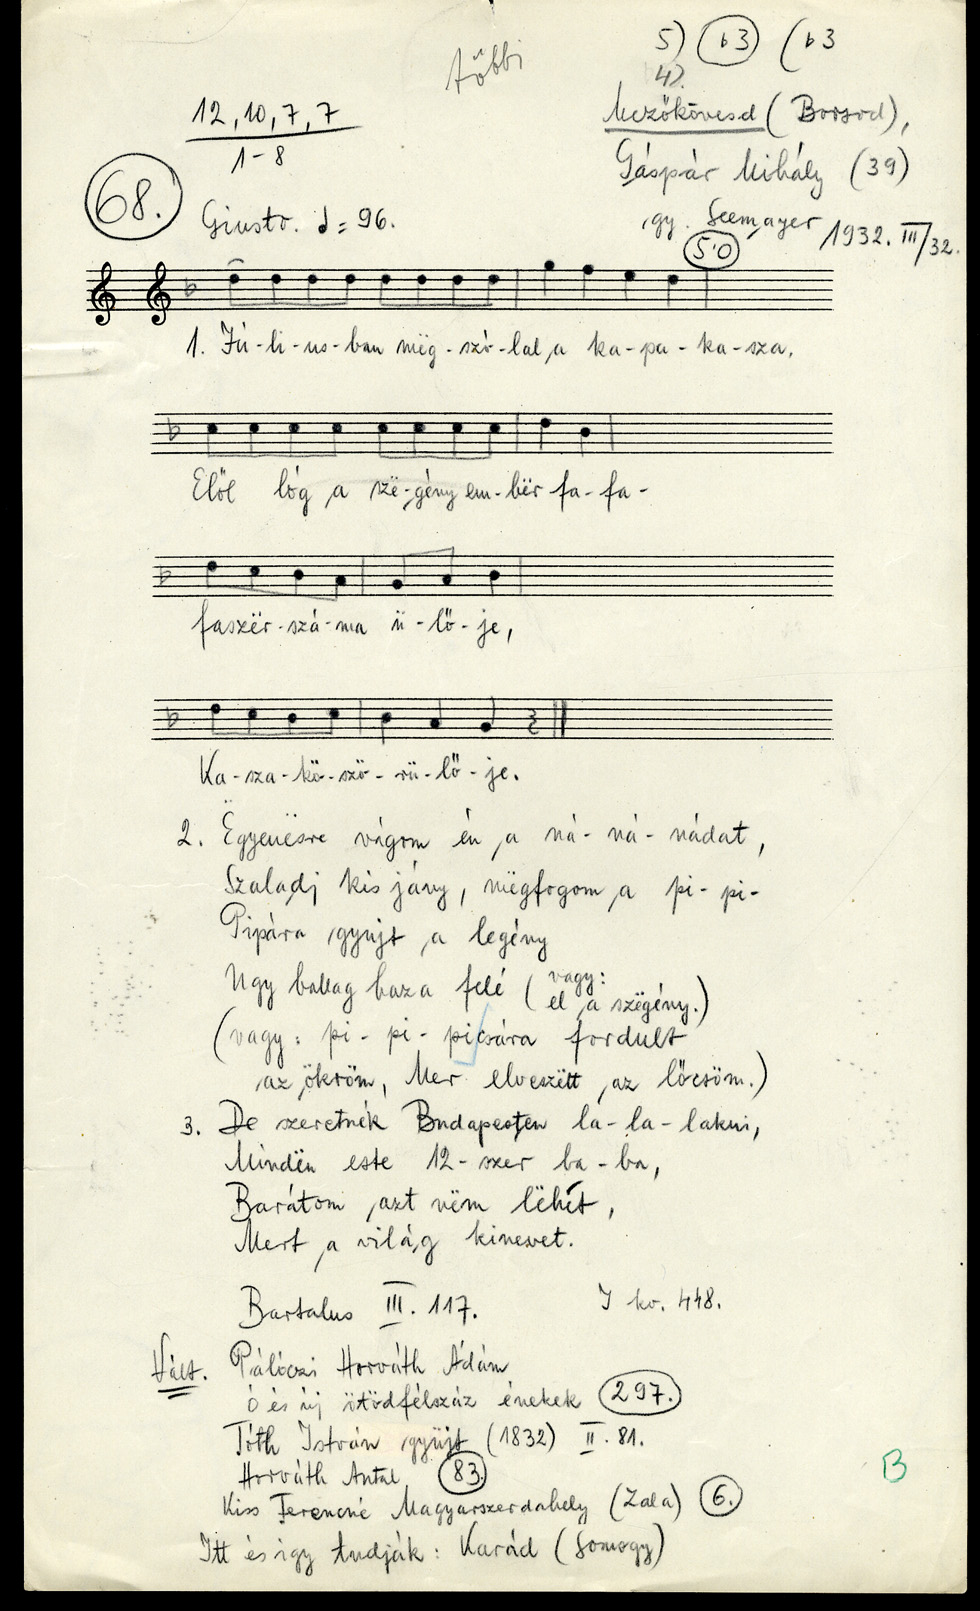 többi
5) (♭3) (♭3
4).
12, 10, 7, 7
1-8
Mezőkövesd (Borsod),
Gáspár Mihály (39)
gy. Seemayer 1932. III/32.
68.
Giusto. ♩= 96.
5'0
1. Jú-li-us-ban mëg-szó-lal a ka-pa-ka-sza,
Elöl lóg a szë-gény em-bër fa-fa-
faszër-szá-ma ü-lő-je,
Ka-sza-kö-szö-rü-lő-je.
2. Ëgyenësre vágom én a ná-ná-nádat,
Szaladj kis jány, mëgfogom a pi-pi-
Pipára gyujt a legény
Ugy ballag haza felé (vagy:
el a szëgény.)
(vagy: pi-pi-picsára fordult
az ökröm, Mer elveszëtt az lőcsöm.)
3. De szeretnék Budapesten la-la-lakni,
Mindën este 12-szer ba-ba,
Barátom azt nëm lëhět,
Mert a világ kinevet.
Bartalus III. 117. I kv. 448.
Vált. Pálóczi Horváth Ádám
Ó és új ötödfélszáz énekek 297.
Tóth István gyüjt (1832) II. 81.
Horváth Antal 83.
Kiss Ferencné Magyarszerdahely (Zala) 6.
B
Itt és igy tudják: Karád (Somogy)